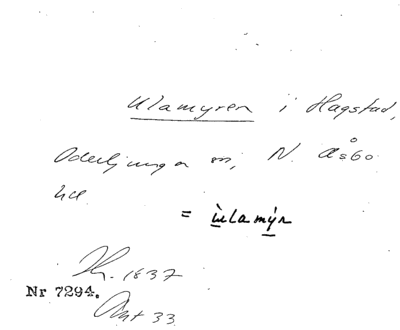 Ulamyren i Hagstad,
Oderljunga sn, N. Åsbo
hd.
= ùlamýr
K. 1837
Nr 7294.
Ant 33